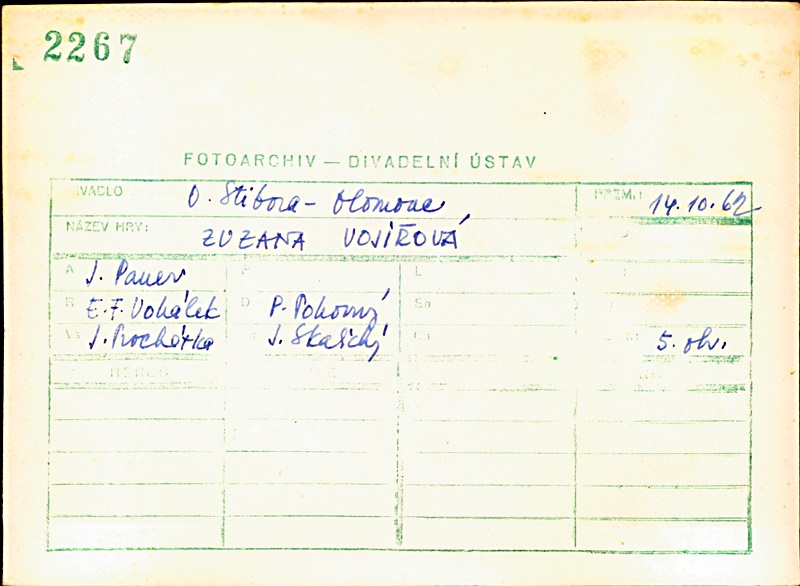 2267
FOTOARCHIV — DIVADELNÍ ÚSTAV
DIVADLO O. Stibora - Olomouc PREM.: 14.10.62
NÁZEV HRY: ZUZANA VOJÍŘOVÁ
A J. Pauer L
R E.F. Vokálek D P. Pokorný Sh
J. Procházka J. Skalický 5. obr.